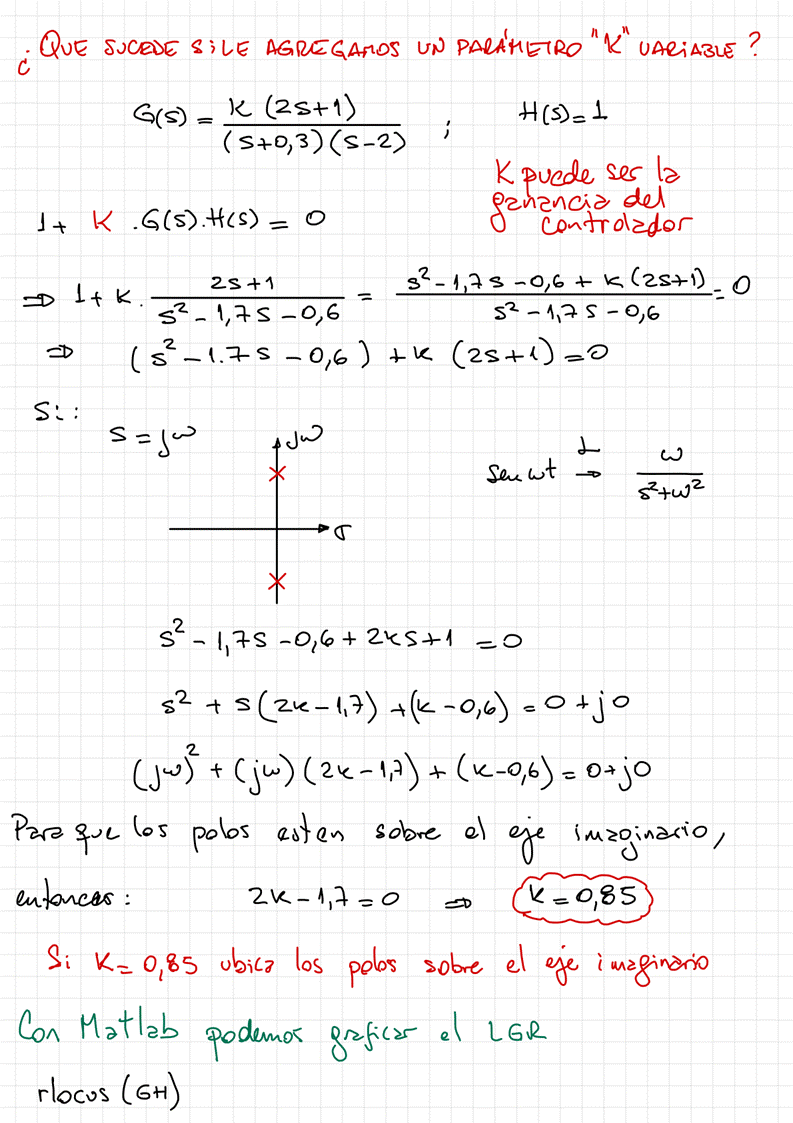 ¿ QUE SUCEDE SI LE AGREGAMOS UN PARÁMETRO "K" VARIABLE ?
G(s) = K (2s+1) / (s+0,3)(s-2) ; H(s)=1
K puede ser la
ganancia del
controlador
1+ K .G(s).H(s) = 0
⇒ 1+ K. (2s+1) / (s² - 1,7s - 0,6) = (s² - 1,7s - 0,6 + K(2s+1)) / (s² - 1,7s - 0,6) = 0
⇒ (s² - 1.7s - 0,6) + K (2s+1) = 0
Si:
s = jω
jω
σ
sen ωt →ℒ ω / (s²+ω²)
s² - 1,7s - 0,6 + 2ks + 1 = 0
s² + s(2k - 1,7) + (k - 0,6) = 0 + j0
(jω)² + (jω)(2k - 1,7) + (k - 0,6) = 0 + j0
Para que los polos esten sobre el eje imaginario,
entonces: 2k - 1,7 = 0 ⇒ k = 0,85
Si K = 0,85 ubica los polos sobre el eje imaginario
Con Matlab podemos graficar el LGR
rlocus (GH)